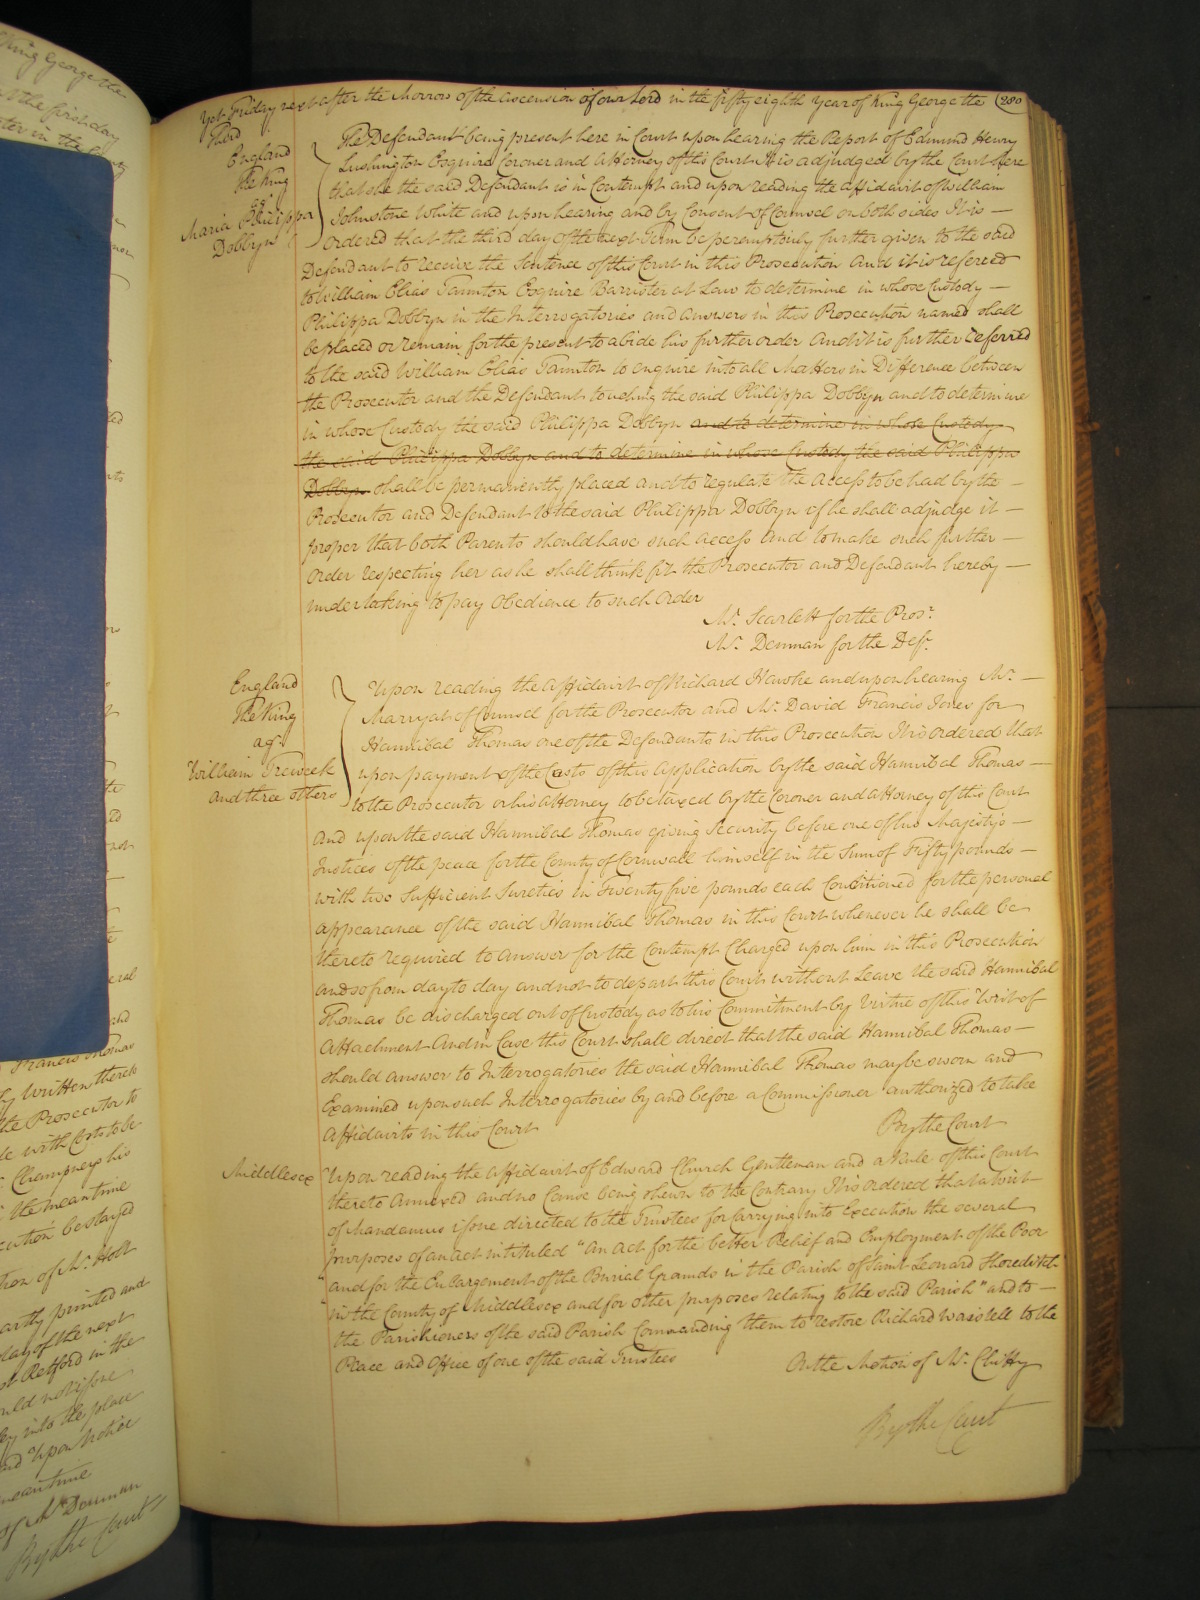 King George the
the first day
Yet Friday next after the Morrow of the ascension of our Lord in the fifty eighth Year of King George the 280
Third
England
The King
agt
Maria Philippa
Dobbyn
The Defendant being present here in Court upon hearing the Report of Edmund Henry
Lushington Esquire Coroner and Attorney of this Court It is adjudged by the Court here
that she the said Defendant is in Contempt and upon reading the affidavit of William
Johnstone White and upon hearing and by Consent of Counsel on both sides It is —
ordered that the third day of the next Term be peremptorily further given to the said
Defendant to receive the Sentence of this Court in this Prosecution And it is referred
to William Elias Taunton Esquire Barrister at Law to determine in whose Custody —
Philippa Dobbyn in the Interrogatories and answers in this Prosecution named shall
be placed or remain for the present to abide his further order And it is further referred
to the said William Elias Taunton to enquire into all Matters in Difference between
the Prosecutor and the Defendant touching the said Philippa Dobbyn and to determine
in whose Custody the said Philippa Dobbyn and to determine in whose Custody
the said Philippa Dobbyn and to determine in whose Custody the said Philippa
Dobbyn shall be permanently placed and to regulate the access to be had by the —
Prosecutor and Defendant to the said Philippa Dobbyn if he shall adjudge it —
proper that both Parents should have such access And to make such further —
order respecting her as he shall think fit the Prosecutor and Defendant hereby —
undertaking to pay obedience to such order
Mr. Scarlett for the Prosr.
Mr. Denman for the Deft.
England
The King
agt.
William Treweek
and three others
Upon reading the affidavit of Richard Hawke and upon hearing Mr. —
Marryat of Counsel for the Prosecutor and Mr. David Francis Jones for
Hannibal Thomas one of the Defendants in this Prosecution It is ordered that
upon payment of the Costs of this application by the said Hannibal Thomas —
to the Prosecutor or his Attorney to be taxed by the Coroner and Attorney of this Court
and upon the said Hannibal Thomas giving Security before one of his Majesty's —
Justices of the peace for the County of Cornwall himself in the Sum of Fifty pounds —
with two Sufficient Sureties in Twenty five pounds each Conditioned for the personal
appearance of the said Hannibal Thomas in this Court whenever he shall be
thereto required to answer for the Contempt Charged upon him in this Prosecution
and so from day to day and not to depart this Court without Leave the said Hannibal
Thomas be discharged out of Custody as to his Commitment by Virtue of this Writ of
Attachment And in Case this Court shall direct that the said Hannibal Thomas —
should answer to Interrogatories the said Hannibal Thomas may be sworn and
Examined upon such Interrogatories by and before a Commissioner authorized to take
Affidavits in this Court
By the Court
Middlesex
Upon reading the affidavit of Edward Church Gentleman and a Rule of this Court
thereto annexed and no Cause being shewn to the Contrary It is ordered that a Writ —
of Mandamus issue directed to the Trustees for Carrying into Execution the several
purposes of an act intituled "an act for the better Relief and Employment of the Poor
"and for the Enlargement of the Burial Grounds in the Parish of Saint Leonard Shoreditch
"in the County of Middlesex and for other purposes relating to the said Parish" and to —
the Parishioners of the said Parish Commanding them to restore Richard Wastell to the
Place and Office of one of the said Trustees
On the Motion of Mr. Chitty
By the Court
Francis Thomas
written there
the Prosecutor to
with Costs to be
Champneys his
the meantime
be stayed
of Mr. Holt
partly printed and
day of the next
Retford in the
not issue
into the place
and Upon Notice
meantime
of Mr. Denman
By the Court